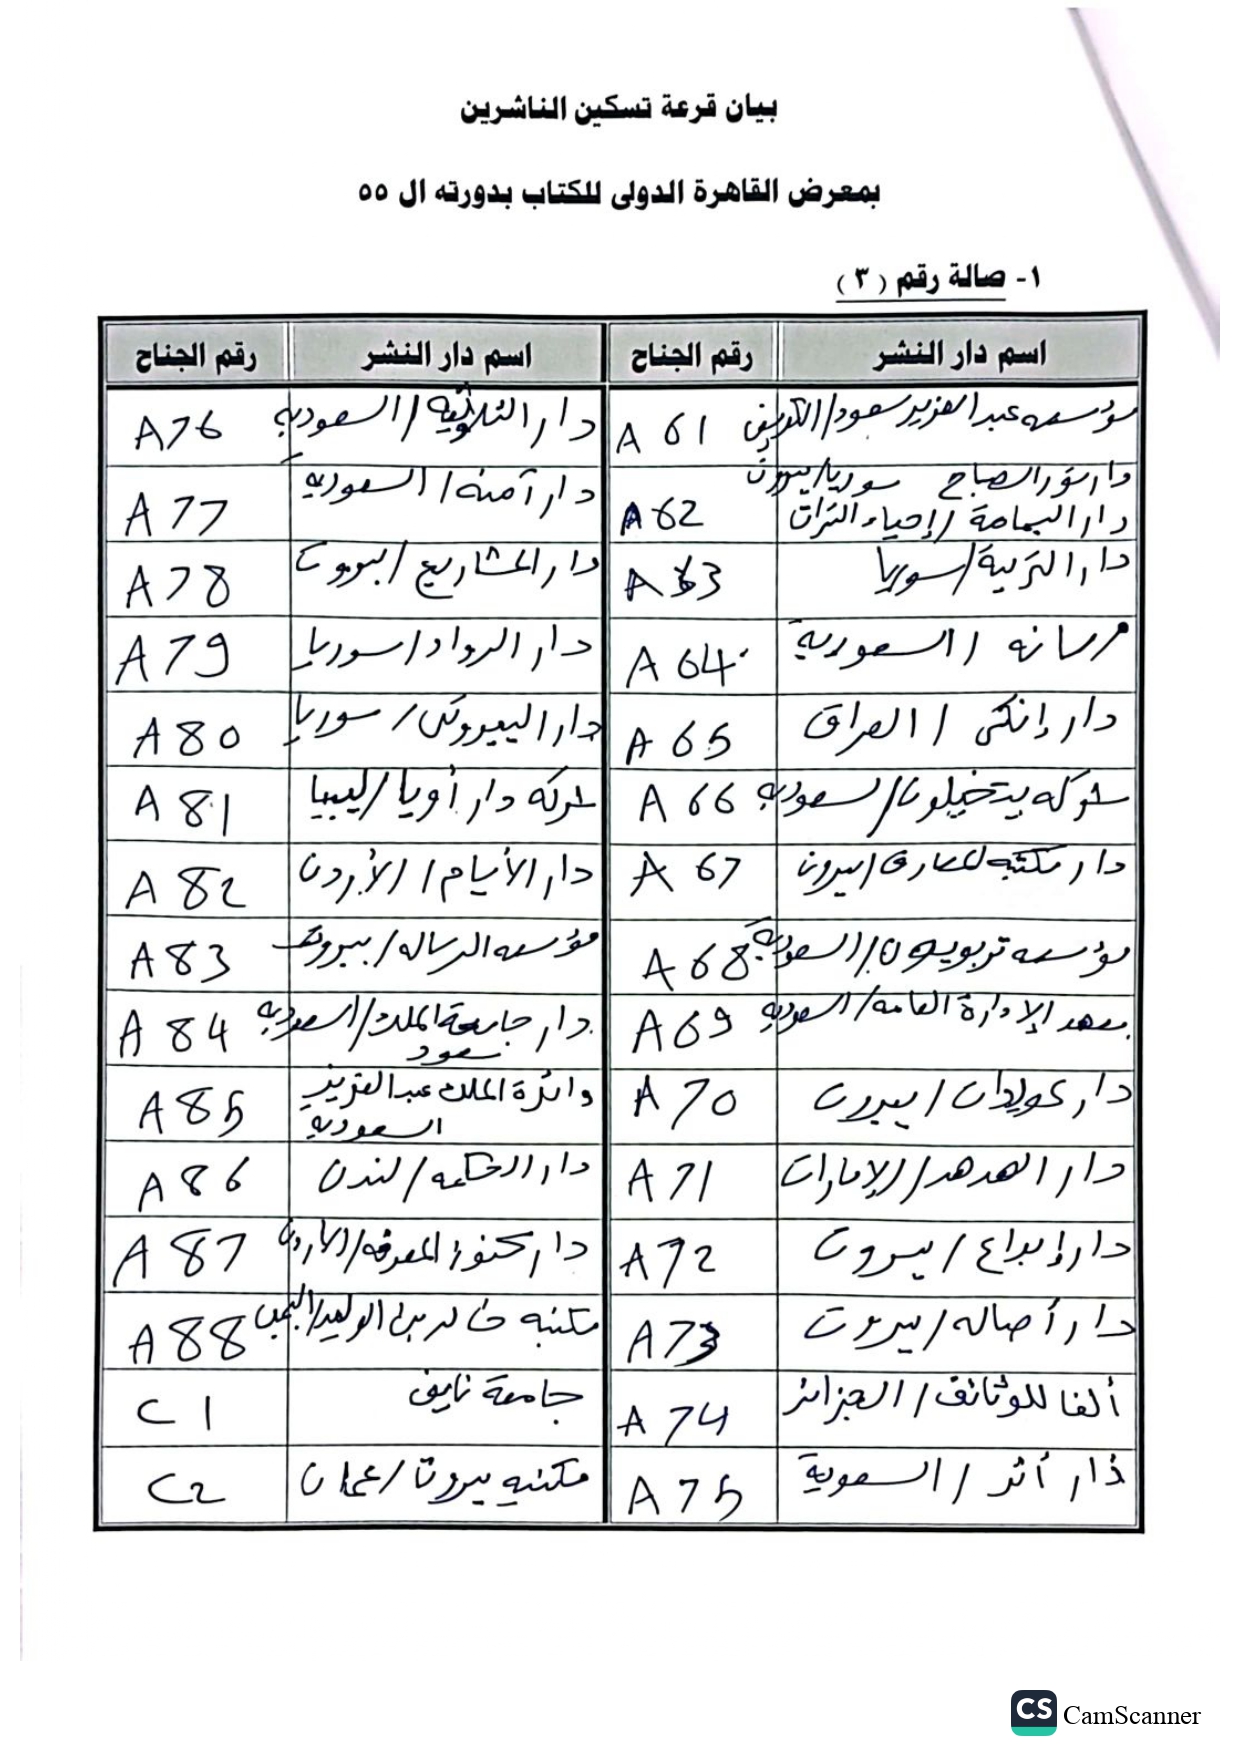 بيان قرعة تسكين الناشرين
بمعرض القاهرة الدولى للكتاب بدورته ال ٥٥
١- صالة رقم ( ٣ )
اسم دار النشر رقم الجناح اسم دار النشر رقم الجناح
مؤسسه عبد العزيز سعود/ A 61 دار الثلوثيه/السعوديه A76
دار نور الصباح سوريا/بيروت
دار اليمامة/إحياء التراث A 62 دار آمنه/السعوديه A 77
دار التربية/سوريا A 63 دار المشاريع/بيروت A 78
/السعودية A 64 دار الرواد/سوريا A 79
دار إنكى/العراق A 65 دار /سوريا A 80
شركه /سعوديه A 66 شركه دار أويا/ليبيا A 81
دار مكتبه المعارف/بيروت A 67 دار الأيام/الأردن A 82
مؤسسه تربويون/السعودية A 68 مؤسسه الرساله/بيروت A 83
معهد الإدارة العامه/السعوديه A 69 دار جامعة الملك/السعوديه
سعود A 84
دار عويدات/بيروت A 70 دائرة الملك عبد العزيز
السعوديه A 85
دار الهدهد/الإمارات A 71 دار الحكمه/لندن A 86
دار إبداع/بيروت A 72 دار كنوز المعرفه/الاردن A 87
دار أصاله/بيروت A 73 مكتبه خالد بن الوليد/اليمن A 88
ألفا للوثائق/الجزائر A 74 جامعة نايف C 1
دار أثر/السعوية A 75 مكتبه بيروت/عمان C2
CS CamScanner